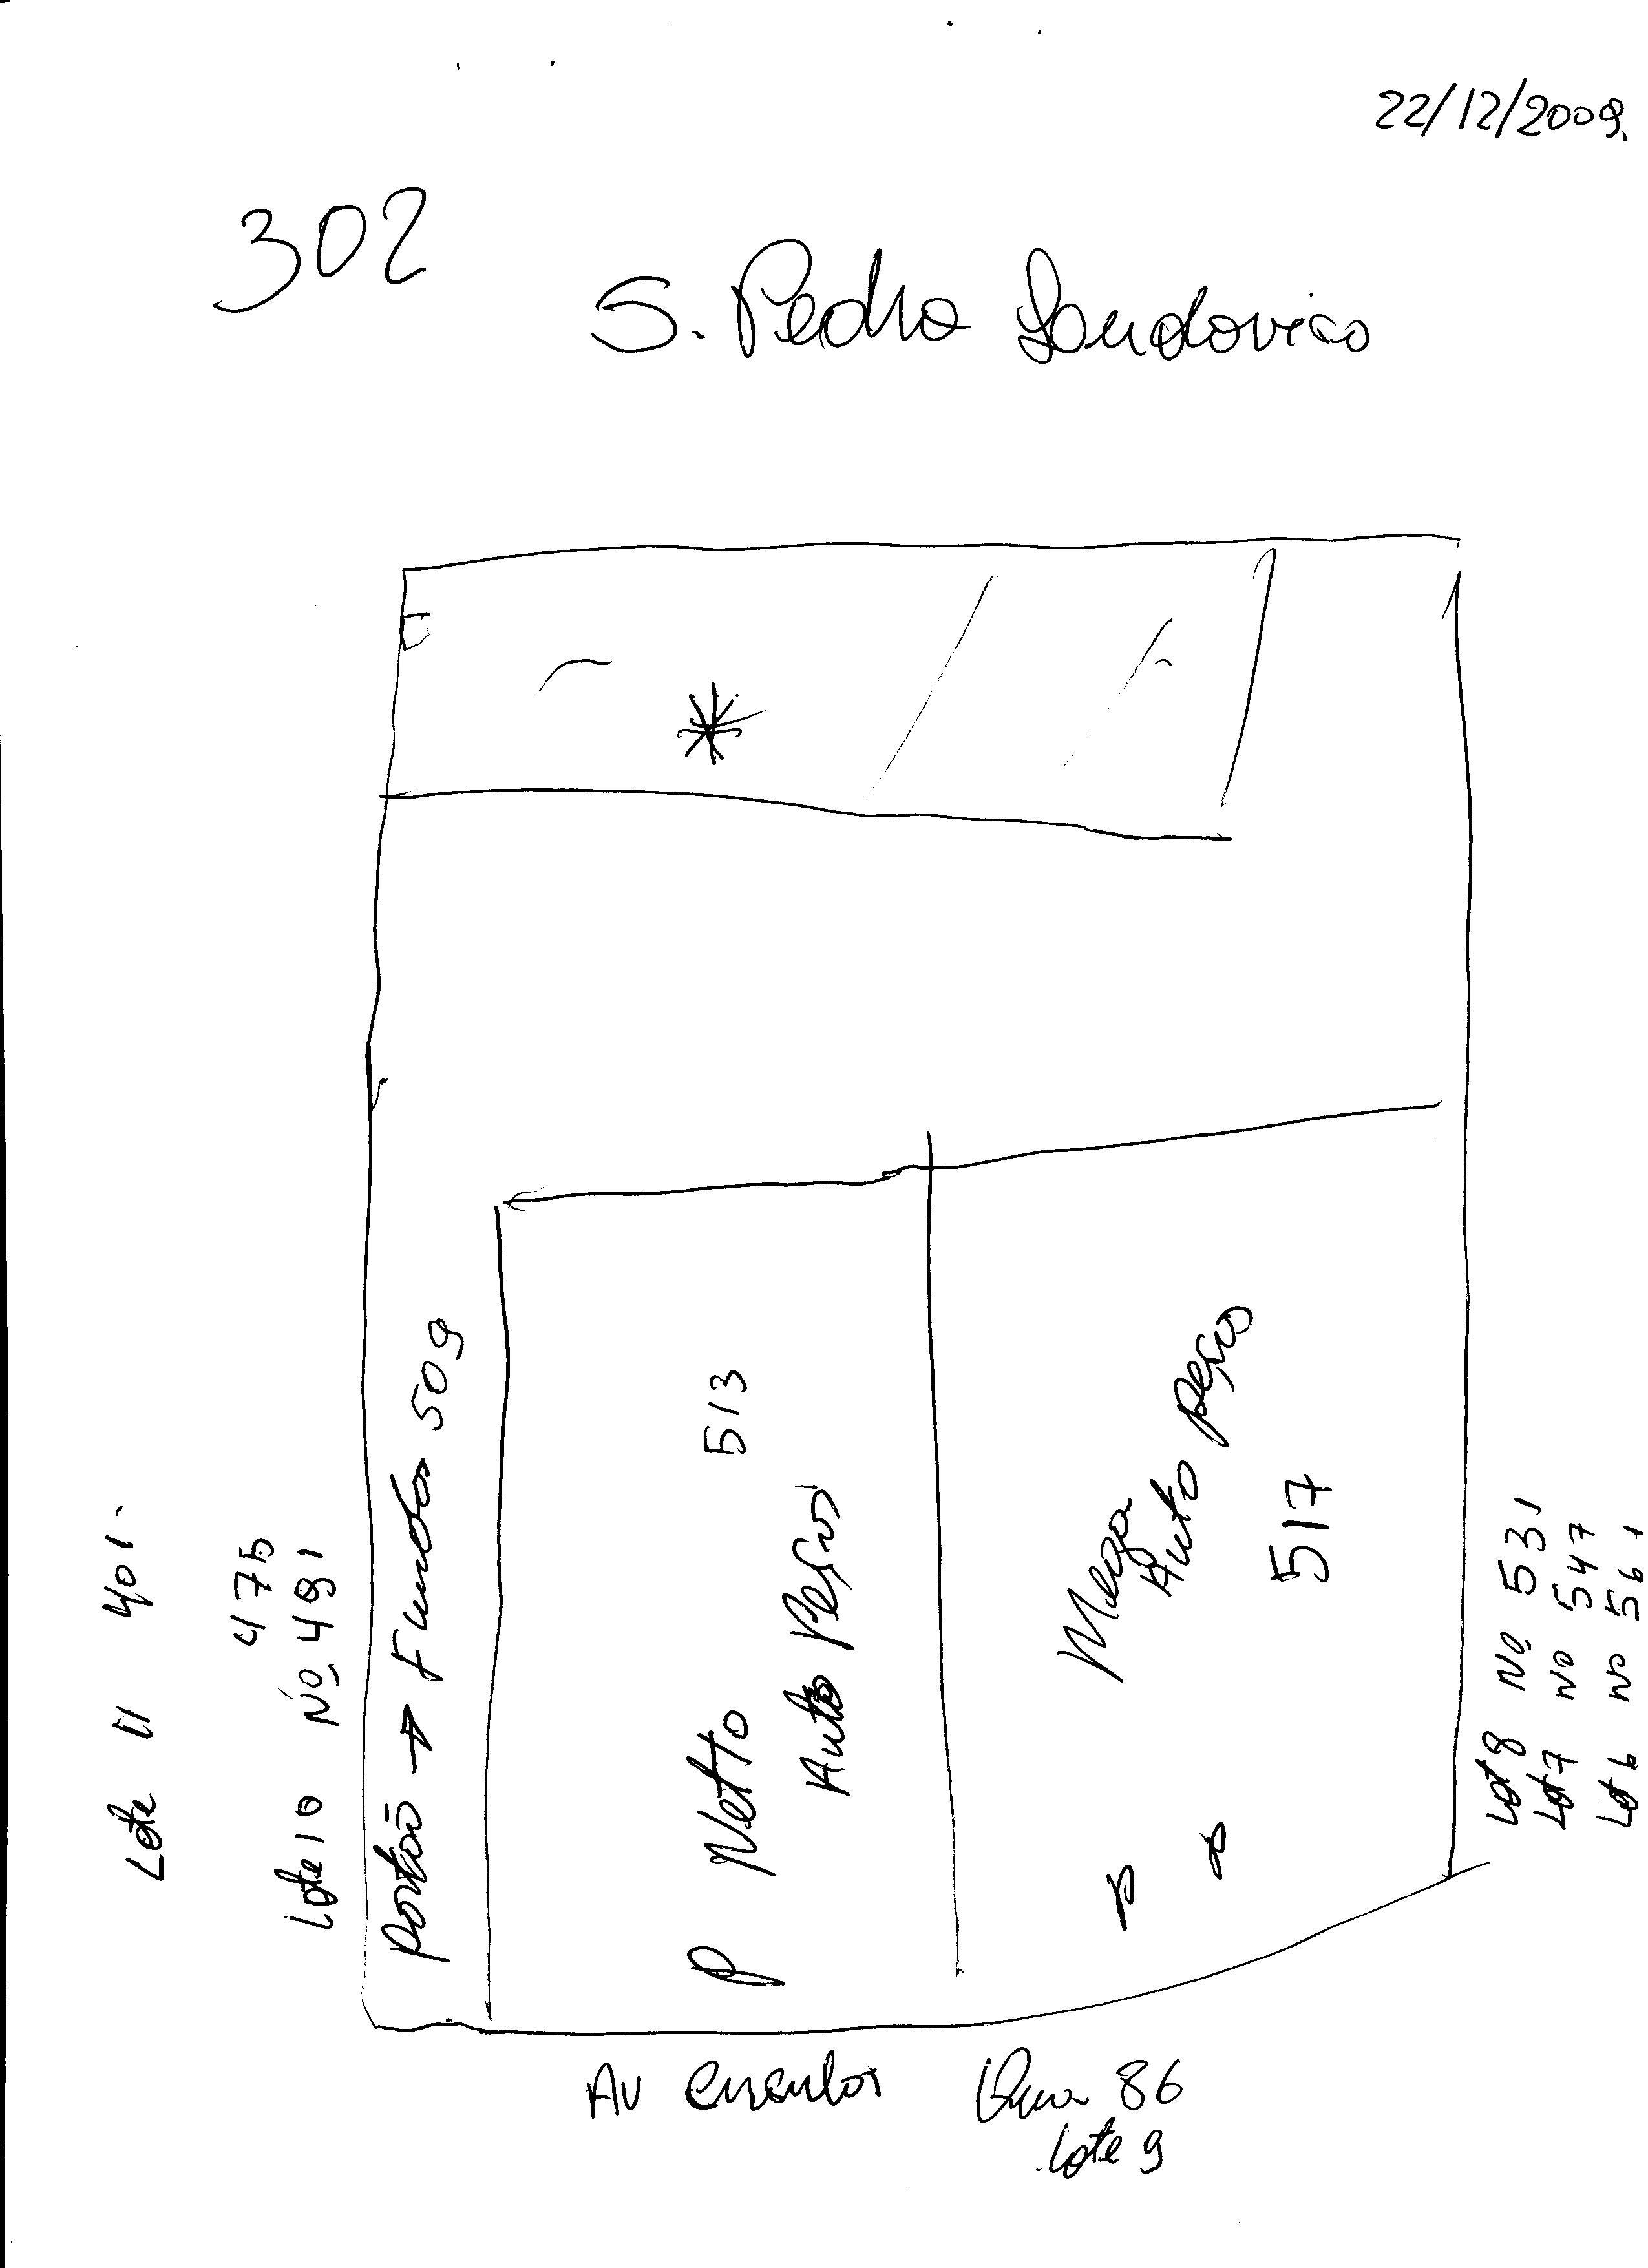 22/12/2009.
302
S. Pedro Loudovico
Lote 11 401.
475
Lote 10 Nº 491
portão → Fundos 509
Netto 513
Auto Peças
Mega
Auto peças
517
Lot 8 Nº 531
Lot 7 Nº 547
Lot 6 Nº 561
Av circular 86
Lote 9